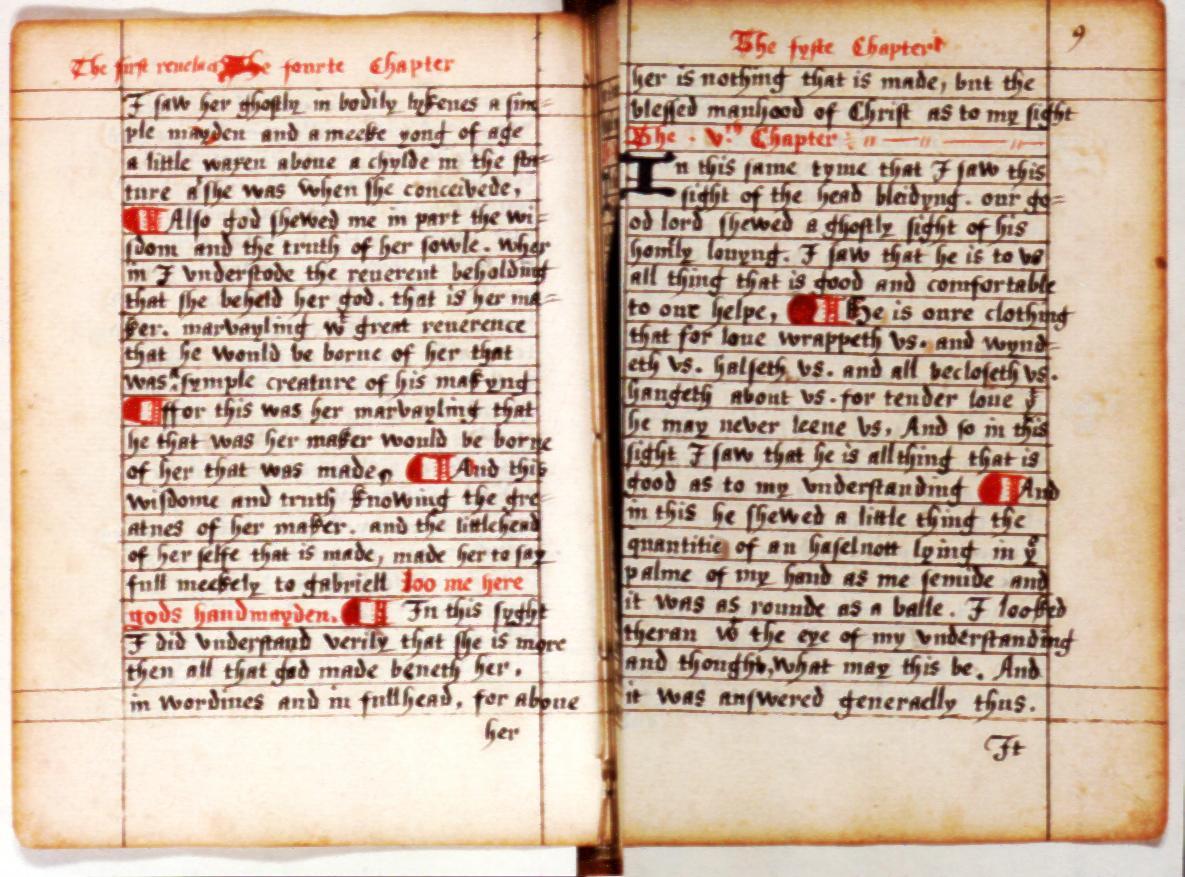 The first reuelaci The fourte Chapter
I saw her ghostly in bodily lykenes a sim=
ple mayden and a meeke yong of age
a little waxen aboue a chylde in the sta=
ture as she was when she conceivede,
Also god shewed me in part the wi=
sdom and the truth of her sowle. wher
in I vnderstode the reuerent beholding
that she beheld her god. that is her ma=
ker. marvayling wt great reuerence
that he would be borne of her that
was a symple creature of his makyng
ffor this was her marvayling that
he that was her maker would be borne
of her that was made, And this
wisdome and truth knowing the gre=
atnes of her maker. and the littlehead
of her selfe that is made, made her to say
full meekely to gabriell loo me here
gods handmayden. In this syght
I did vnderstand verily that she is more
then all that god made beneth her.
in wordines and in fullhead, for aboue
her
The fyfte Chapter
9
her is nothing that is made, but the
blessed manhood of Christ as to my sight
The . V.th Chapter
In this same tyme that I saw this
sight of the head bleidyng. our go=
od lord shewed a ghostly sight of his
homly louyng. I saw that he is to vs
all thing that is good and comfortable
to our helpe, He is oure clothing
that for loue wrappeth vs. and wynd=
eth vs. halseth vs. and all becloseth vs.
hangeth about vs. for tender loue yt
he may never leene vs, And so in this
sight I saw that he is all thing that is
good as to my vnderstanding And
in this he shewed a little thing the
quantitie of an haselnott lying in ye
palme of my hand as me semide and
it was as rounde as a balle. I looked
theran wt the eye of my vnderstanding
and thought, what may this be. And
it was answered generaelly thus.
It